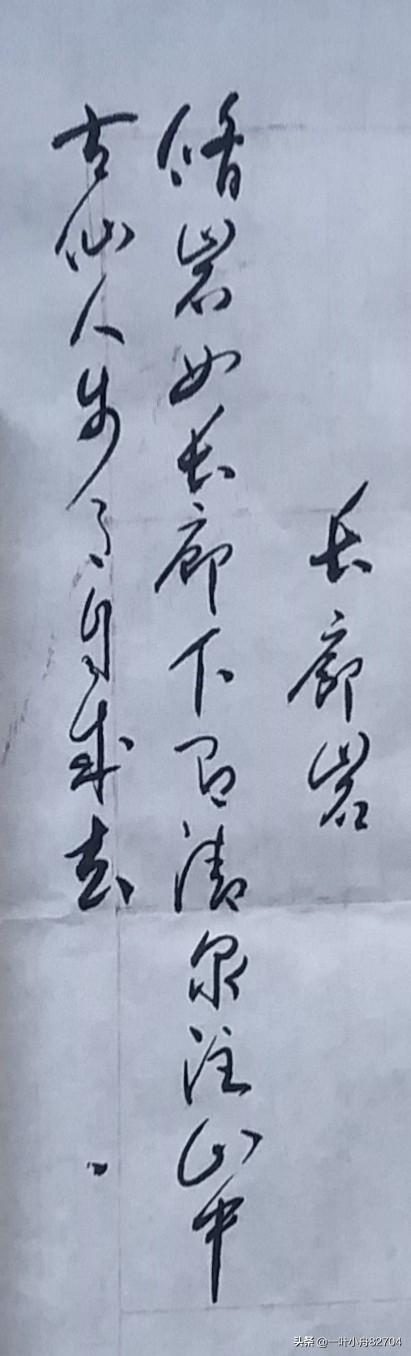 长廊岩
俻岩如长廊下有清泉注山中
古仙人步了自来去
头条 @一叶小舟82704